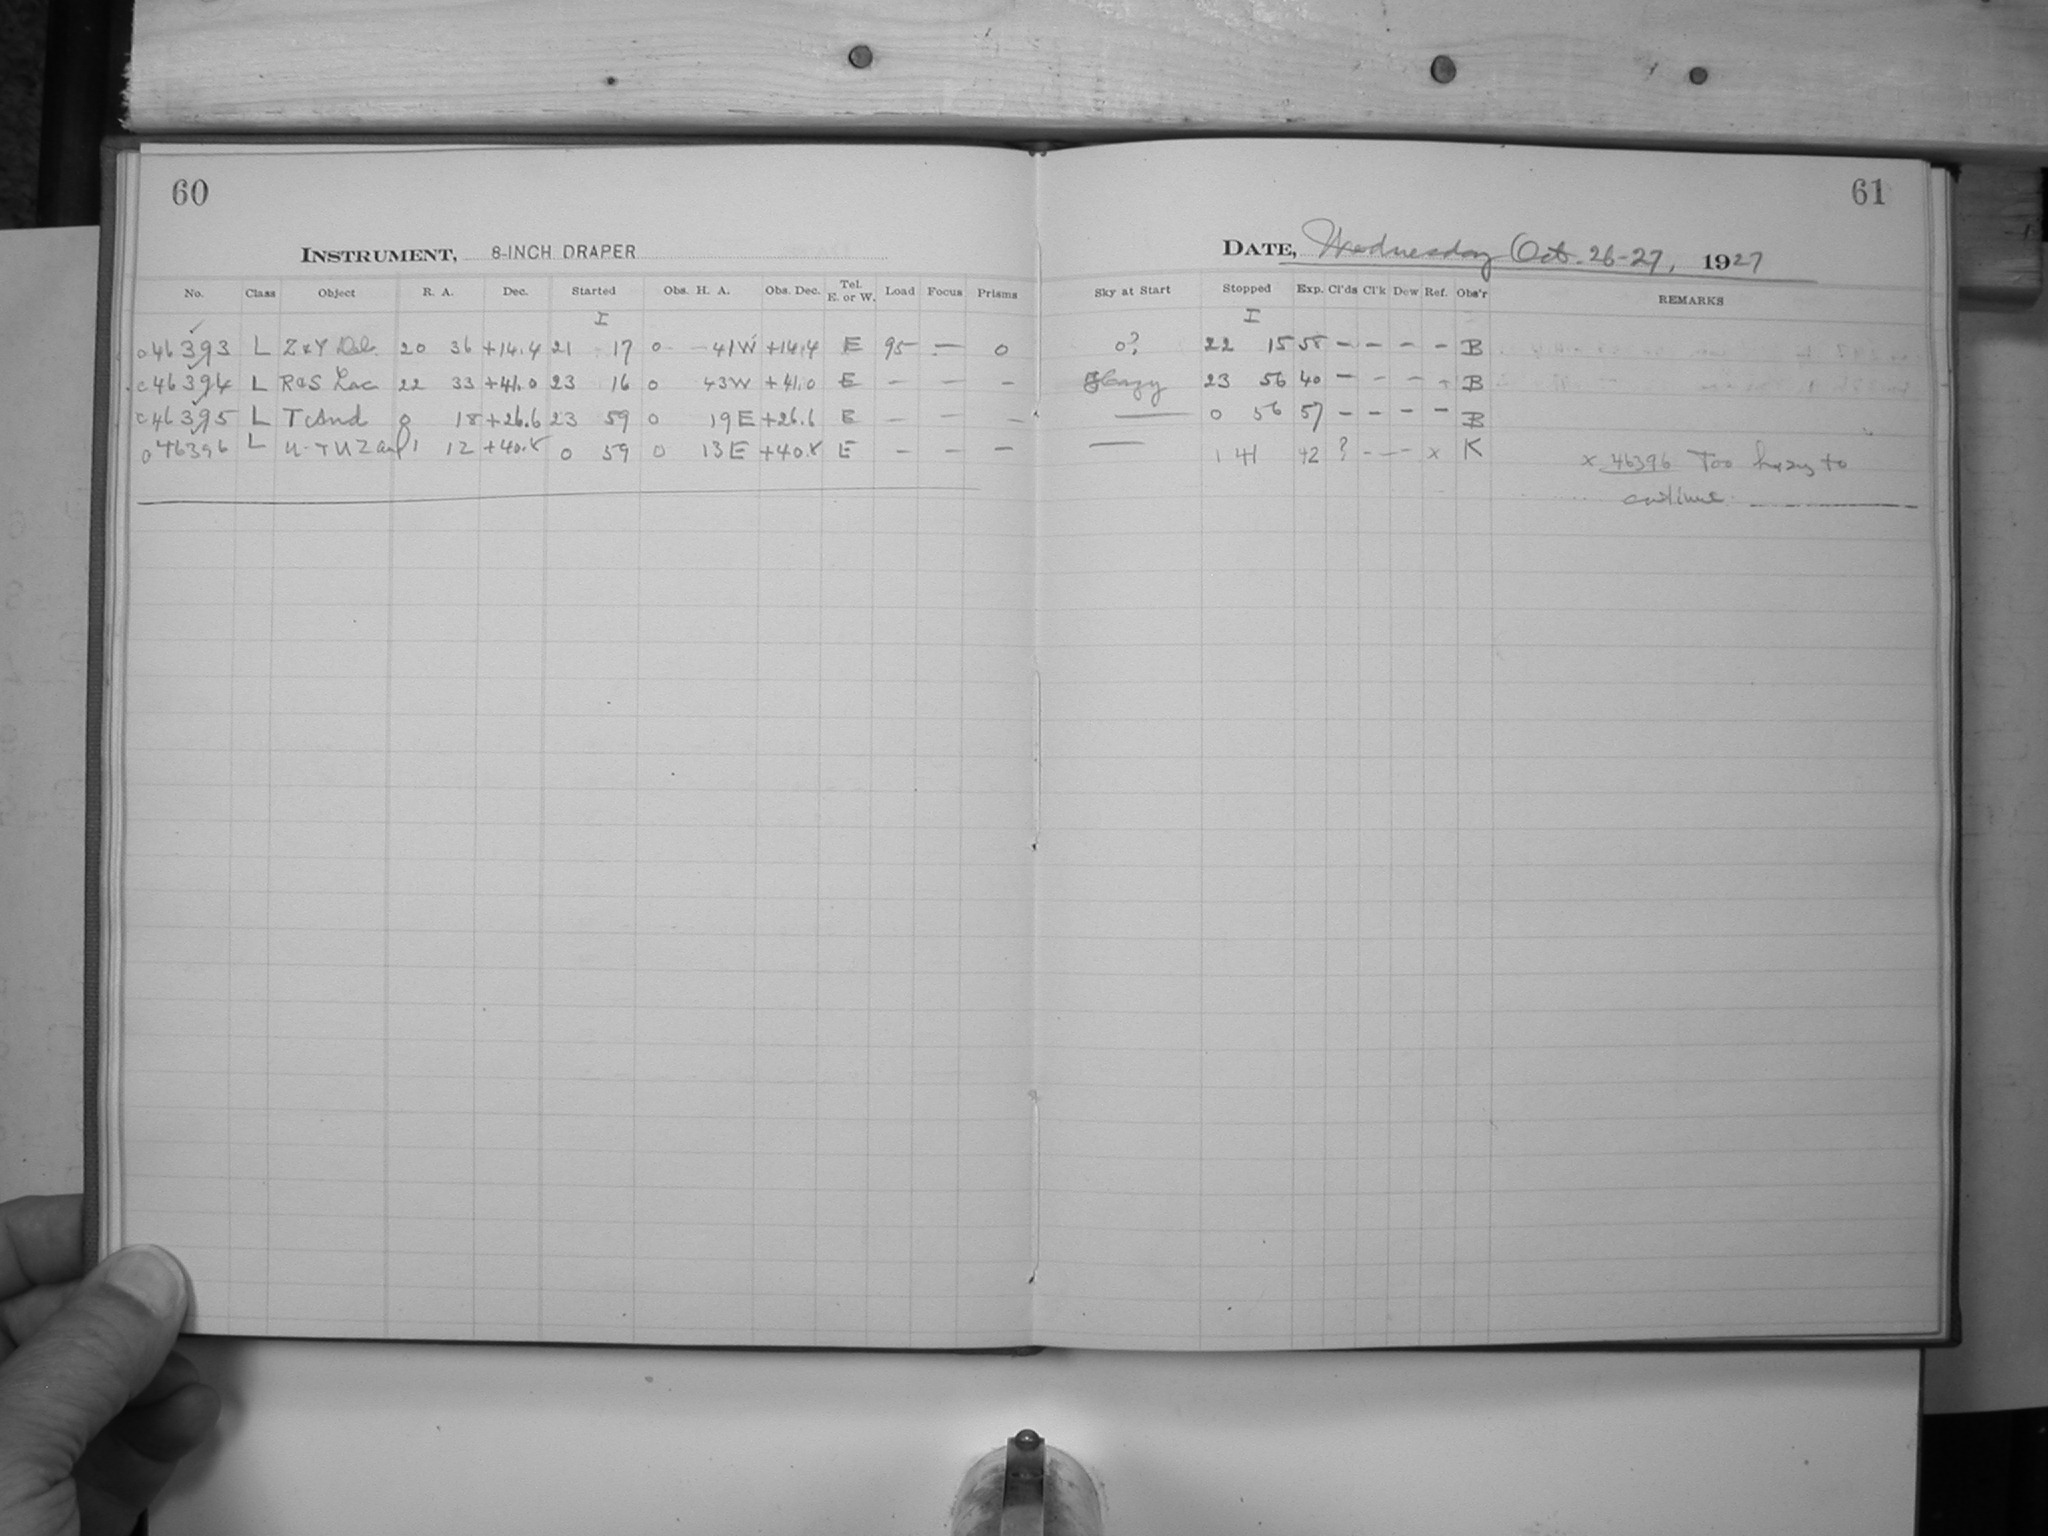 60
INSTRUMENT, 8-INCH DRAPER
No. Class Object R. A. Dec. Started Obs. H. A. Obs. Dec. Tel. E. or W. Load Focus Prisms
I
46393 L Z & Y Del. 20 36 +14.4 21 17 0 41W +14.4 E 95 — 0
46394 L R & S Lac 22 33 +41.0 23 16 0 43W +41.0 E — — —
46395 L T And 0 18 +26.6 23 59 0 19E +26.6 E — — —
46396 L 1 12 +40.8 0 59 0 13E +40.8 E — — —
61
DATE, Wednesday Oct. 26-27, 1927
Sky at Start Stopped Exp. Cl'ds Cl'k Dew Ref. Obs'r REMARKS
I
0? 22 15 58 — — — — B
Hazy 23 56 40 — — — + B
— 0 56 57 — — — — B
— 1 41 42 ? — — — x K x 46396 Too hazy to
continue